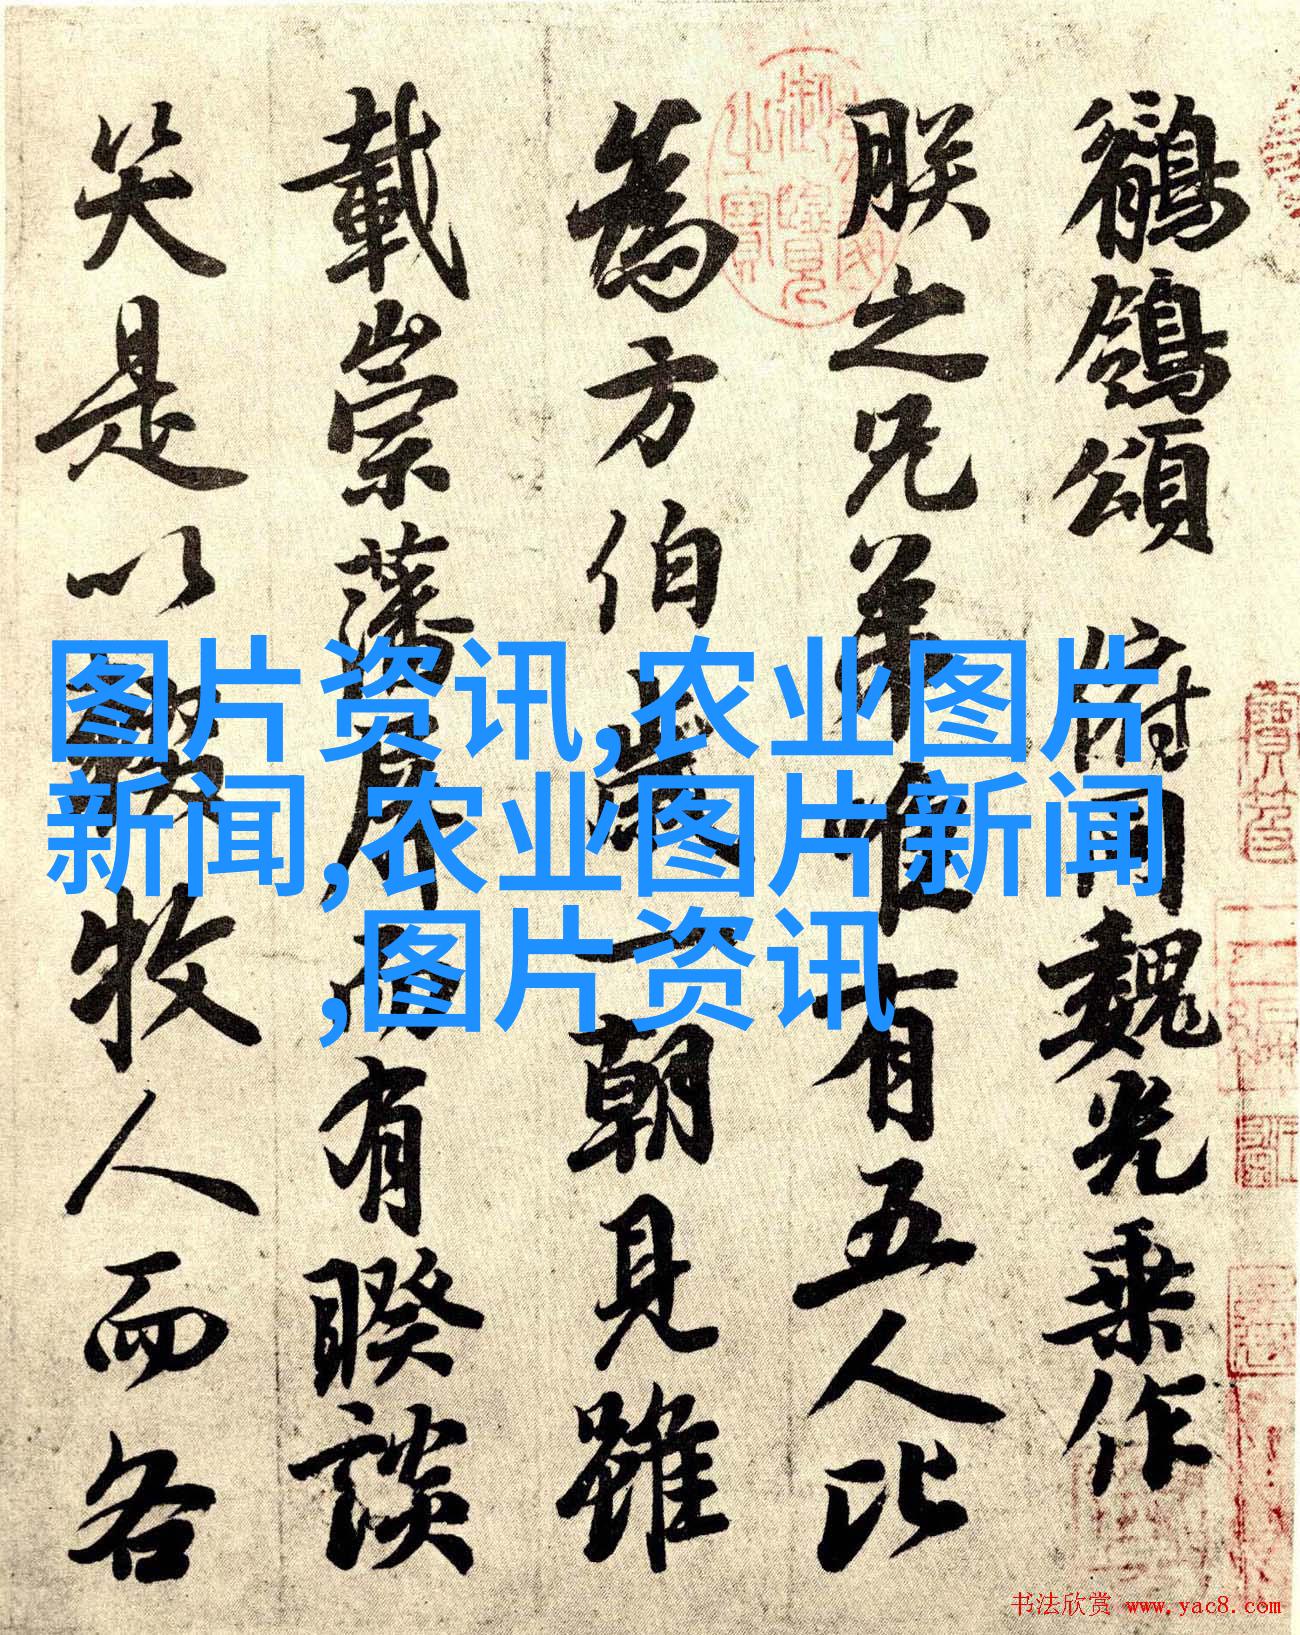 鶺鴒頌 俯同魏光乘作
朕之兄弟唯有五人比
為方伯歲一朝見雖
載崇藩屏而有睽談
笑是以輟牧人而各
图片资讯,农业图片
新闻,农业图片新闻
,图片资讯
书法欣赏 www.yac8.com